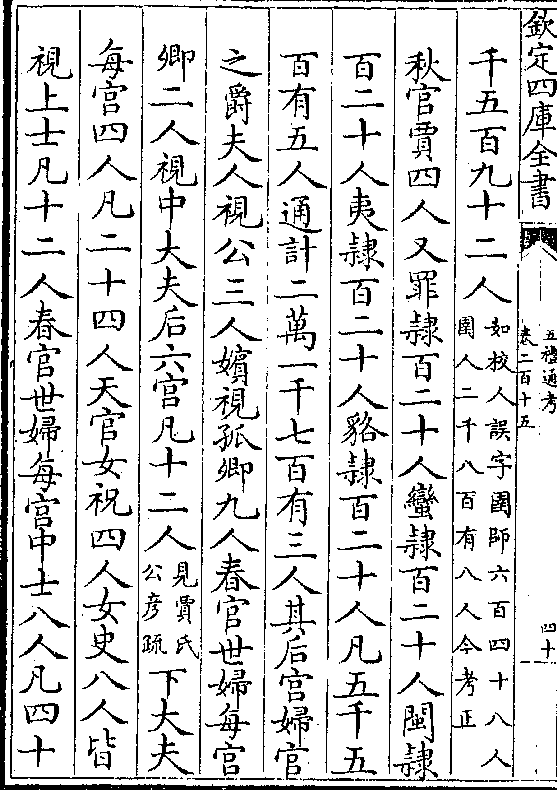 欽定四庫全書
五禮通考
卷二百十五
四十
千五百九十二人如校人誤字圉師六百四十八人
圉人二千八百有八人今考正
秋官賈四人又罪隷百二十人蠻隷百二十人閩隷
百二十人夷隷百二十人貉隷百二十人凡五千五
百有五人通計二萬一千七百有三人其后宫婦官
之爵夫人視公三人嬪視孤卿九人春官世婦每宫
卿二人視中大夫后六宫凡十二人見賈氏
公彦疏下大夫
每宫四人凡二十四人天官女祝四人女史八人皆
視上士凡十二人春官世婦每宫中士八人凡四十